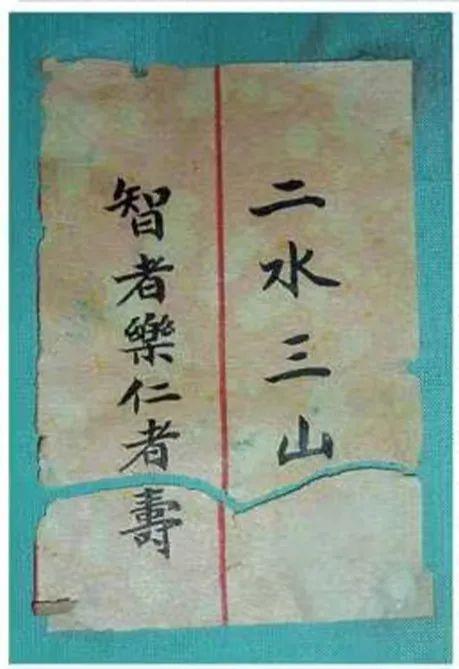 二水三山
智者樂仁者壽